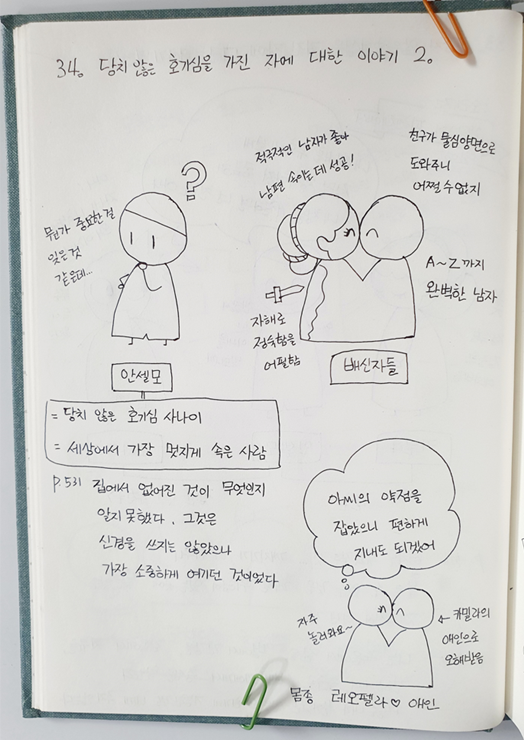 34. 당치 않은 호기심을 가진 자에 대한 이야기 2.
뭔가 중요한걸
잊은 것
같은데...
?
안셀모
적극적인 남자가 좋아
남편 속이는데 성공!
친구가 물심양면으로
도와주니
어쩔 수 없지
A~Z까지
완벽한 남자
자해로
정숙함을
어필함
배신자들
= 당치 않은 호기심 사나이
= 세상에서 가장 멋지게 속은 사람
P.531 집에서 없어진 것이 무엇인지
알지 못했다. 그것은
신경을 쓰지는 않았으나
가장 소중하게 여기던 것이었다
아씨의 약점을
잡았으니 편하게
지내도 되겠어
자주
놀러와요~
← 카밀라의
애인으로
오해받음
몸종 레오펠라 ♡ 애인